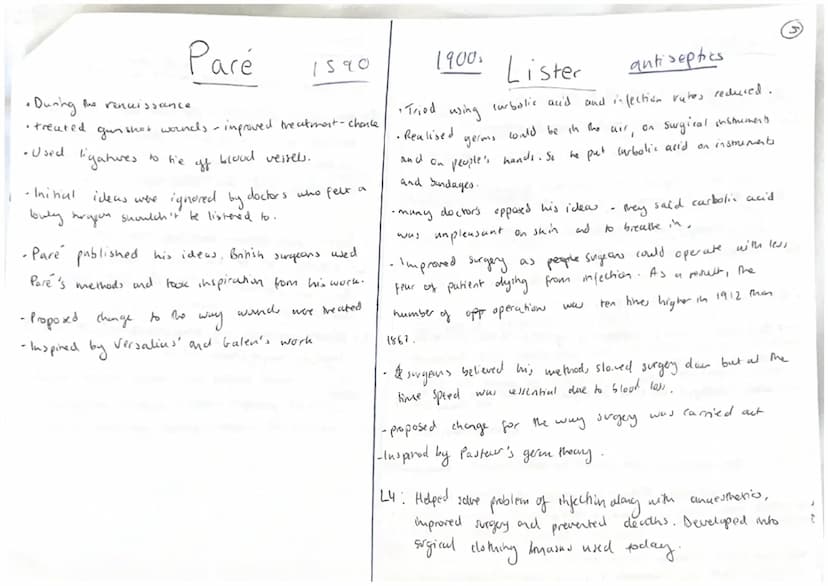 3
Paré 1590
• During the renaissance
• treated gunshot wounds - improved treatment - chance
• Used ligatures to tie off blood vessels.
- Initial ideas were ignored by doctors who felt a
lowly surgeon shouldn't be listened to.
- Paré published his ideas, British surgeons used
Paré's methods and took inspiration from his work.
- Proposed change to the way wounds were treated
- Inspired by Versalius' and Galen's work
1900s Lister antiseptics
• Tried using carbolic acid and infection rates reduced.
• Realised germs could be in the air, on surgical instruments
and on people's hands. So he put carbolic acid on instruments
and bandages.
- many doctors opposed his ideas - they said carbolic acid
was unpleasant on skin and to breathe in.
- Improved surgery as people surgeons could operate with less
fear of patient dying from infection. As a result, the
number of opp operations was ten times higher in 1912 than
1867.
• surgeons believed his methods slowed surgery down but at the
time speed was essential due to blood loss.
- proposed change for the way surgery was carried out
- Inspired by Pasteur's germ theory.
L4: Helped solve problem of infection along with anaesthetics,
improved surgery and prevented deaths. Developed into
surgical clothing used today.